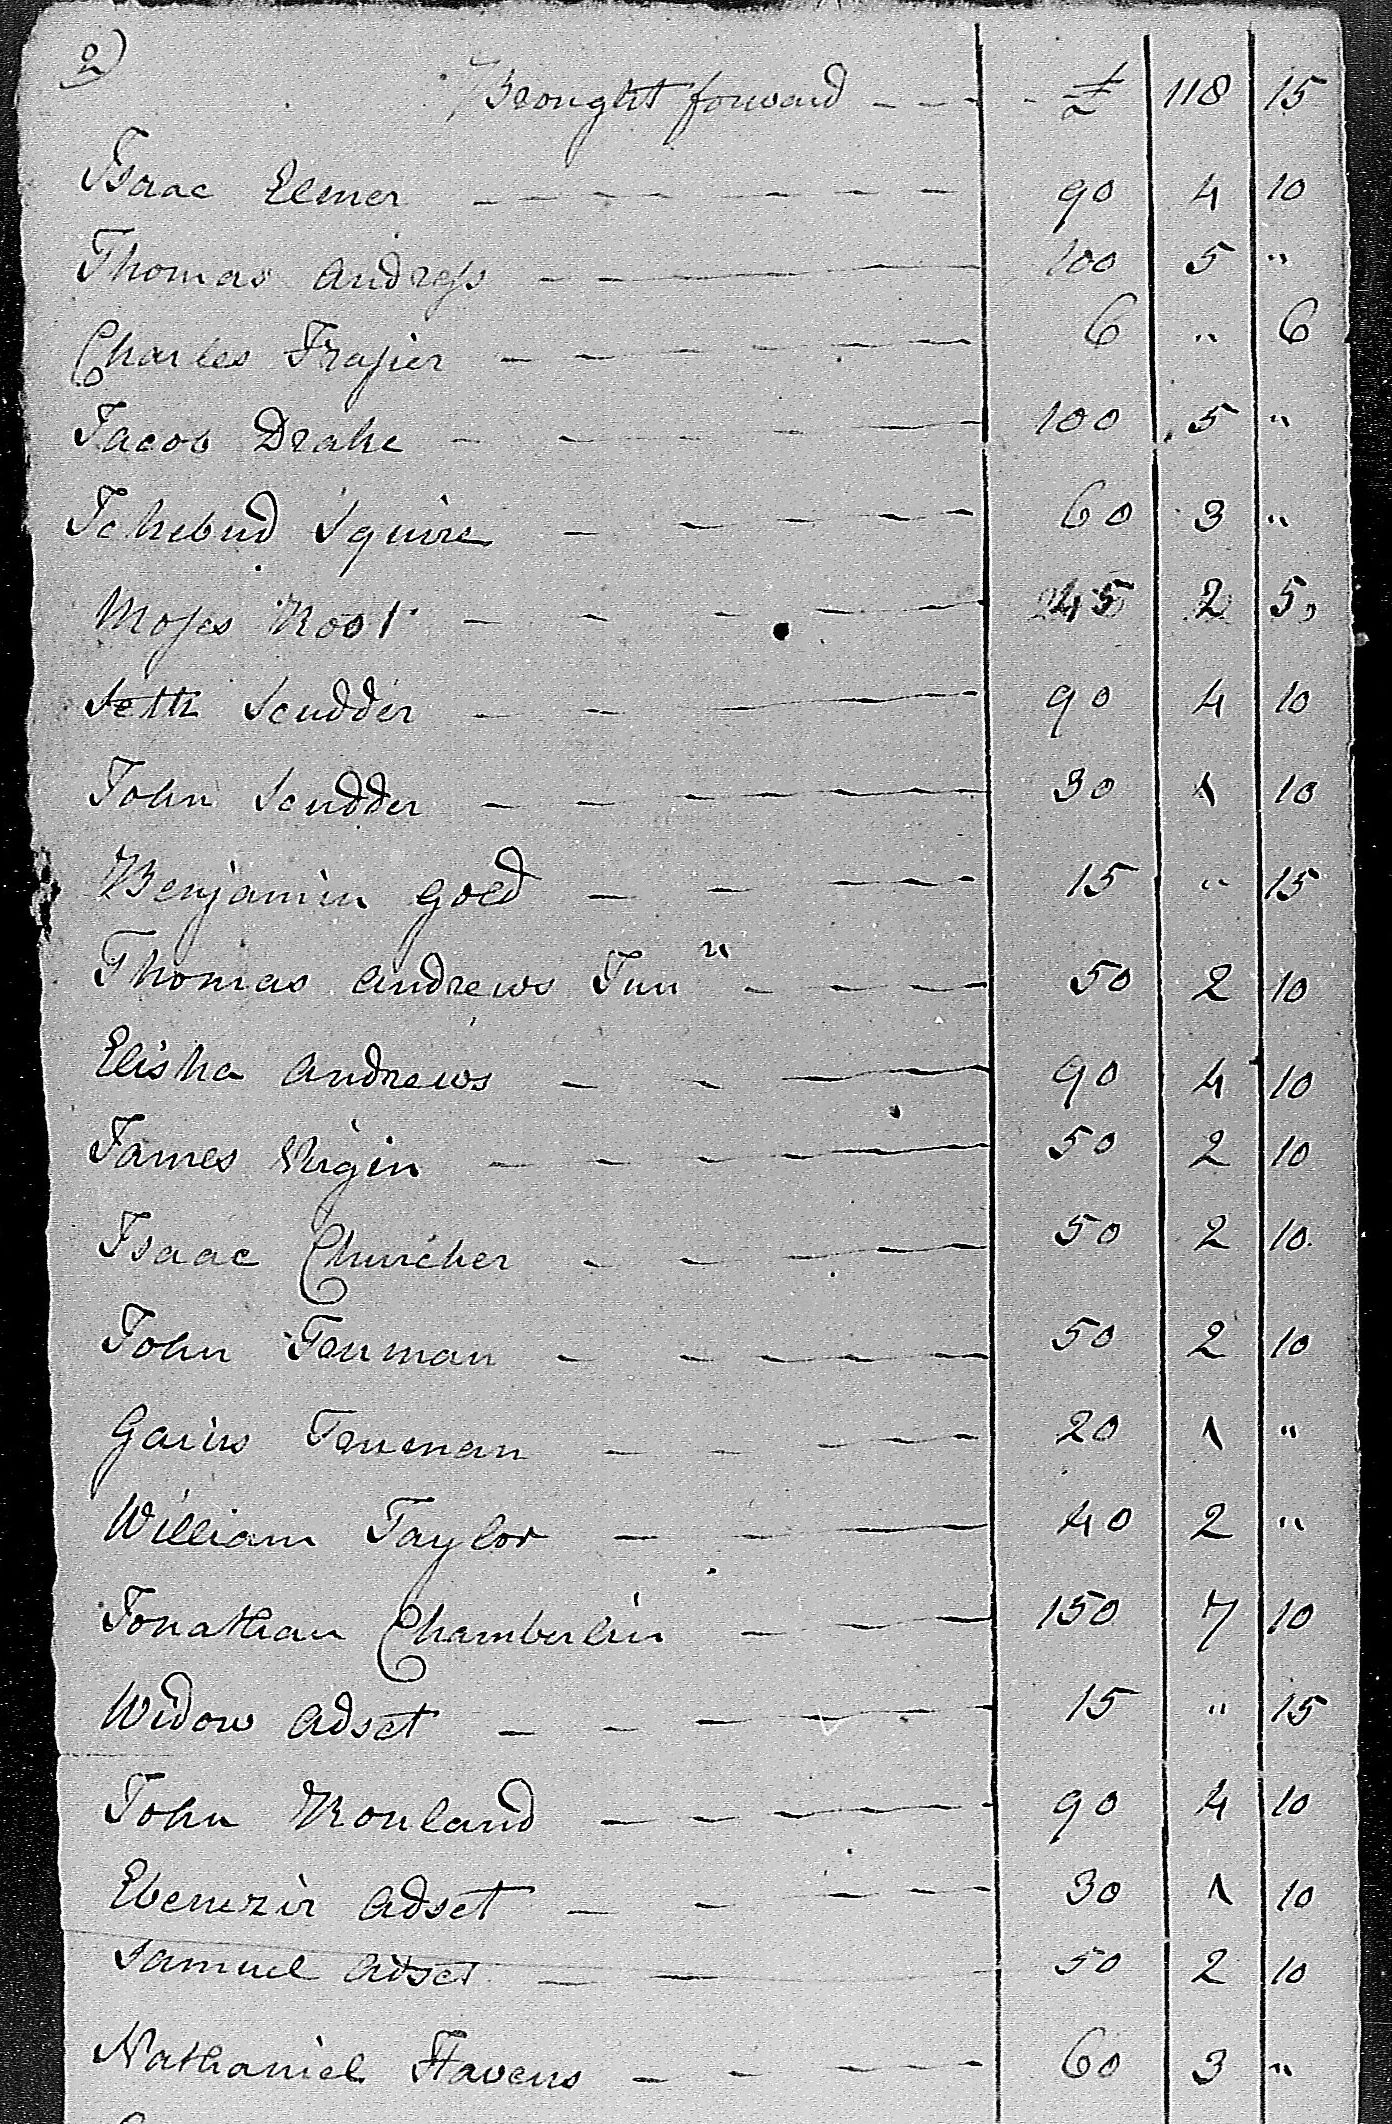 2)
Brought forward - - - - £ 118 15
Isaac Elmer - - - - - - - 90 4 10
Thomas Andress - - - - - 100 5 "
Charles Frasier - - - - - 6 " 6
Jacob Drake - - - - - 100 5 "
Ichebud Squire - - - - 60 3 "
Moses Root - - - - - 45 2 5
Seth Scudder - - - - - 90 4 10
John Scudder - - - - - 30 1 10
Benjamin Gold - - - - 15 " 15
Thomas Andrews Junr - - - 50 2 10
Elisha Andrews - - - - 90 4 10
James Virgin - - - - - 50 2 10
Isaac Churcher - - - - 50 2 10
John Fenman - - - - - 50 2 10
Gaius Fenman - - - - 20 1 "
William Taylor - - - - 40 2 "
Jonathan Chamberlin - - - 150 7 10
Widow Adset - - - - - 15 " 15
John Rouland - - - - - 90 4 10
Ebenezir Adset - - - - 30 1 10
Samuel Adset - - - 50 2 10
Nathaniel Havens - - - - 60 3 "